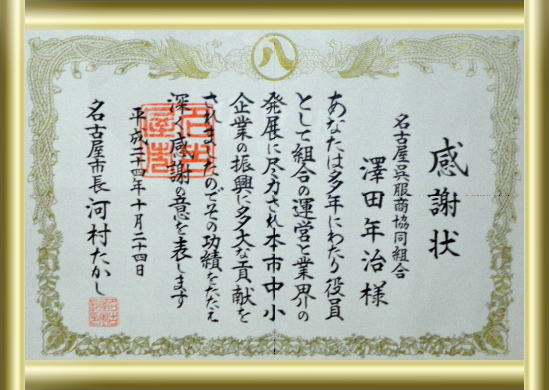 八
感謝状
名古屋呉服商協同組合
澤田年治様
あなたは多年にわたり役員
として組合の運営と業界の
発展に尽力され本市中小
企業の振興に多大な貢献を
されましたのでその功績をたたえ
深く感謝の意を表します
平成二十四年十月二十四日
名古屋市長 河村たかし